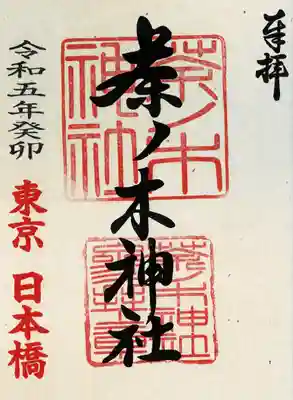 奉拝
茶ノ木神社
茶ノ木
神社
令和五年癸卯
東京 日本橋